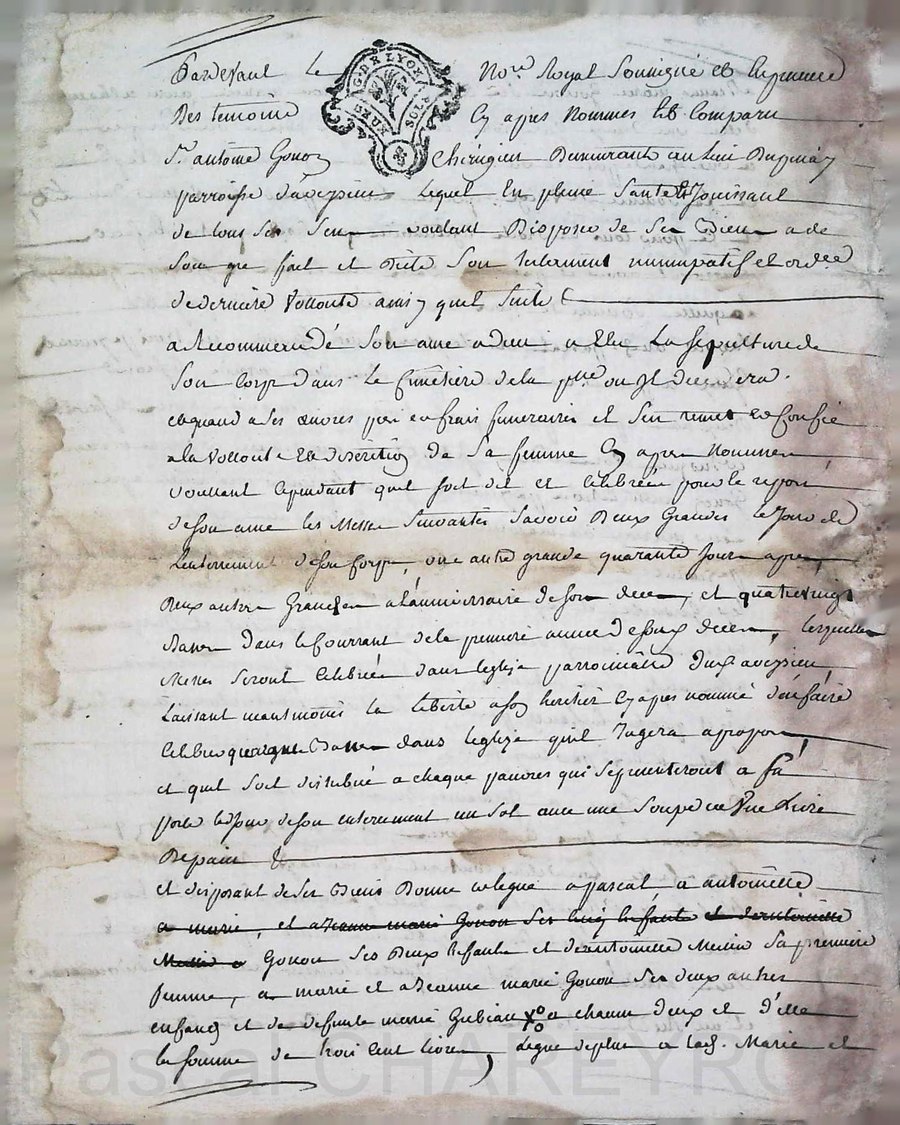 Pardevant le No.re Royal Soussigné et En presence
G. DE LYON
Des temoins Cy apres Nommés est Comparu
S.r antoine Gonon Chirugien Demeurant au lieu
parroisse d'aveysieu lequel En pleine Santé et Jouissant
de tous Ses Sens voulant Disposer de Ses Biens a de
Son gré fait et Dicté Son testament nuncupatif et ordre
de derniere Vollonté ainsy quil Suit
a Recommendé Son ame a dieu a Elu La Sepulture de
Son Corps dans le Cimetiere de la p.sse ou Il decedera.
et quand a Ses œuvres pies et frais funeraires il Sen remet et Confie
a la Vollonté et discretion de Sa femme Cy apres Nommée
voullant Cependant quil Soit dit et Celebrées pour le repos
de Son ame les Messes Suivantes Savoir Deux Grandes le Jour de
Lenterrement de Son Corps, une autre grande quarante Jours apres
Deux autres Grandes a L'anniversaire de Son deces, et quatrevingt
Basses dans le Courrant de la premiere année de Son deces, lesquelles
Messes Seront Celebrées dans leglize parroissialle Dud. aveysieu
Laissant neantmoins la liberté a Son heritier Cy apres nommé d'en faire
Celebrer Basses dans leglize quil Jugera a propos
et quil Soit distribué a chaque pauvres qui Se presenteront a Sa
porte le Jour de Son enterrement un Sol avec une Soupe ou Une Livre
De pain
et disposant de Ses Biens Donne et legue a pascal a antoinette
a marie, et a Jeanne marie Gonon Ses Cinq Enfants et d'antoinette
Gonon Ses Deux Enfants et d'antoinette Sa premiere
femme, a marie et a Jeanne marie Gonon Ses deux autres
enfans et de defunte marie Gubian a chacun d'eux et d'elle
la Somme de trois Cent livres, Legue de plus a lad. Marie et
Pascal CHAREYRON